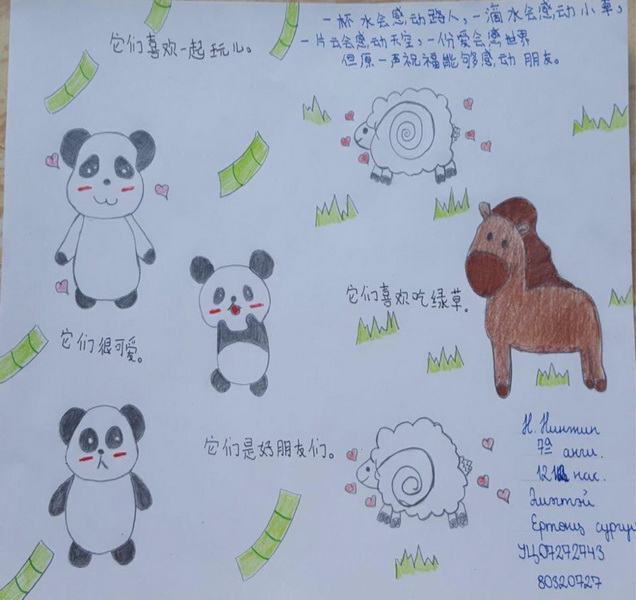 它们喜欢一起玩儿。
一杯水会感动路人，一滴水会感动小草，
一片云会感动天空，一份爱会感世界
但原一声祝福能够感动朋友。
它们喜欢吃绿草.
它们很可爱。
它们是好朋友们。
Н.
7а анги.
нас.
Ертөнц
УЦ07272743
80320727